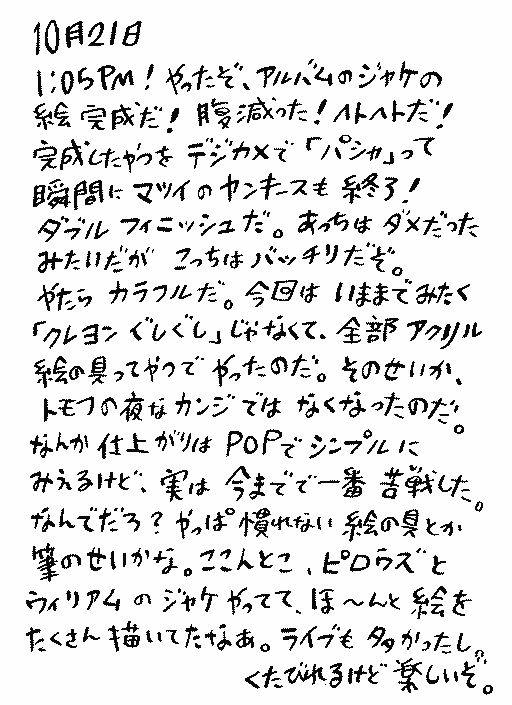 10月21日
1:05PM!やったぞ、アルバムのジャケの
絵完成だ!腹減った!ヘトヘトだ!
完成したやつをデジカメで「パシャ」って
瞬間にマツイのヤンキースも終了!
ダブルフィニッシュだ。あっちはダメだった
みたいだがこっちはバッチリだぞ。
やたらカラフルだ。今回はいままでみたく
「クレヨンぐしぐし」じゃなくて、全部アクリル
絵の具ってやつでやったのだ。そのせいか、
トモフの夜なカンジではなくなったのだ。
なんか仕上がりはPOPでシンプルに
みえるけど、実は今までで一番苦戦した。
なんでだろ?やっぱ慣れない絵の具とか
筆のせいかな。ここんとこ、ピロウズと
ウィリアムのジャケやってて、ほ〜んと絵を
たくさん描いてたなあ。ライブも多かったし。
くたびれるけど楽しいぞ。